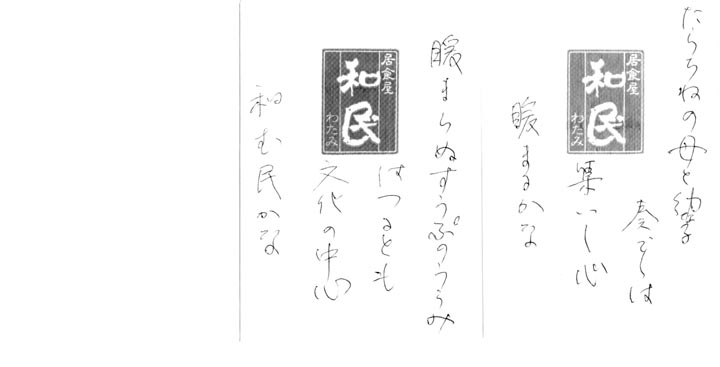 たらちねの母と
奏でしは
居食屋
和民
わたみ
集いし心
暖まるかな
暖まらぬすうぷのうらみ
はつるとも
居食屋
和民
わたみ
文化の中心
和む民かな